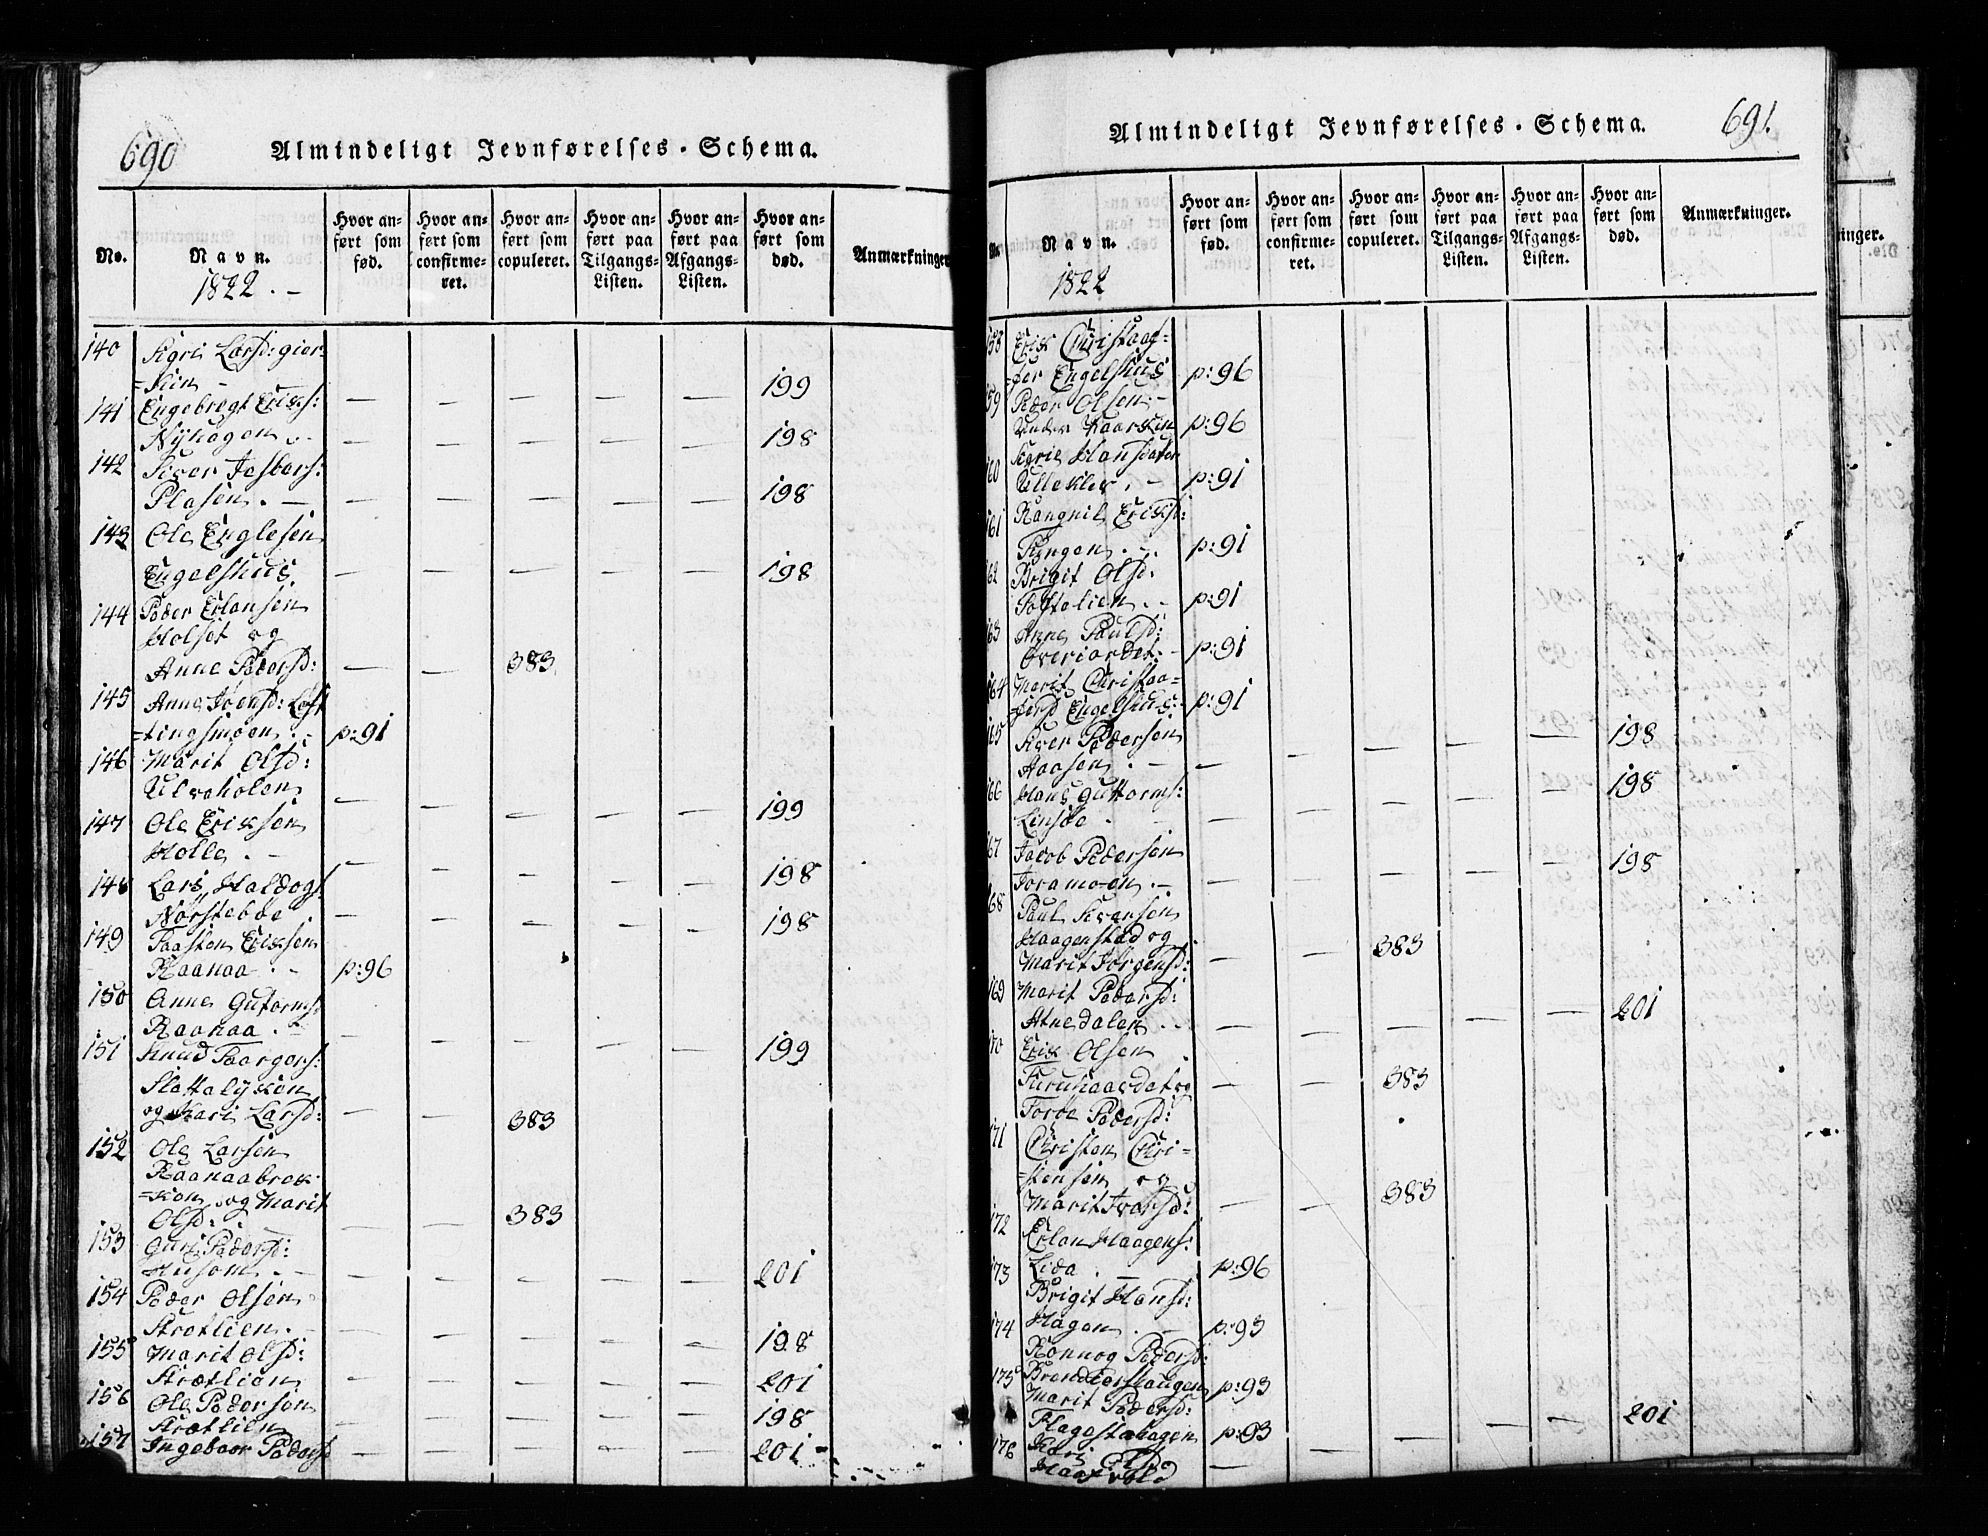 690
Almindeligt Jevnførelses-Schema.
No.
Navn.
1822. -
Hvor anført som fød.
Hvor anført som confirmeret.
Hvor anført som copuleret.
Hvor anført paa Tilgangs-Listen.
Hvor anført paa Afgangs-Listen.
Hvor anført som død.
Anmærkninger
140 Sigri Larsd:
— — — — — 199
141 Engebregt Eriks:
Nÿhagen — — — — — 198
142 Siver
Plasen. — — — — — — 198
143 Ole Englesen
Engelshus. — — — — — 198
144 Peder Erlansen
Holset og
Anne Pedersd: — — 383
145 Anne Joensd:
=tingsmoen. - p:91
146 Marit Olsd:
Ulvaholen — — — — — 199
147 Ole Eriksen
Holle. — — — — — — 198
148 Lars Haldogs:
Nørsteböe — — — — — 198
149 Taasten Eriksen
Raanaa. - p:96
150 Anne Gutormsd
Raanaa. — — — — — 199
151 Knud Taargers:
Slottalÿkken
og Kari Larsd: — — 383
152 Ole Larsen
Raanaabrek
=ken og Marit
Olsd: — — 383
153 Guri Pedersd:
Husom. — — — — — — 201
154 Peder Olsen
Strætlien. — — — — — 198
155 Marit Olsd:
Strætlien — — — — — 201
156 Ole Pedersen
Strætlien — — — — — 198
157 Ingebaar Pedersd — — — — — 201
691.
Almindeligt Jevnførelses-Schema.
No.
Navn.
1822
Hvor anført som fød.
Hvor anført som confirmeret.
Hvor anført som copuleret.
Hvor anført paa Tilgangs-Listen.
Hvor anført paa Afgangs-Listen.
Hvor anført som død.
Anmærkninger.
158 Erik Christaaf=
=fer Engelshus p:96
159 Peder Olsen -
Under Kaarsten p:96
160 Sigrie Hansdater
Ulleklev. - p:91
161 Rangnil Eriksd:
p:91
162 Brigit Olsd:
Toftelien. - p:91
163 Anne Paulsd:
Øveriordet. - p:91
164 Marit Christaa=
=fersd Engelshus: p:91
165 Siver Pedersen
Aaasen. — — — — — — 198
166 Hans Guttorms:
Linsöe. — — — — — 198
167 Jacob Pedersen
Joramo-en. — — — — — — 198
168 Paul Sivensen
Haagenstad og
Marit Jørgensd: — — 383
169 Marit Pedersd:
Atnedalen. — — — — — 201
170 Erik Olsen
Furuhaardet og — — 383
Toroe Pedersd:
171 Christen Chri=
=stensen og
Marit Ivarsd: — — 383
172 Erlan Haagens:
Lida. — p:96
173 Brigit Hansd:
Hagen. — p:93
174 Rönnog Pedersd:
Brendløershaugen p:93
175 Marit Pedersd:
Flagestahagen p:93
176 Kari Olsd
— — — — — 201